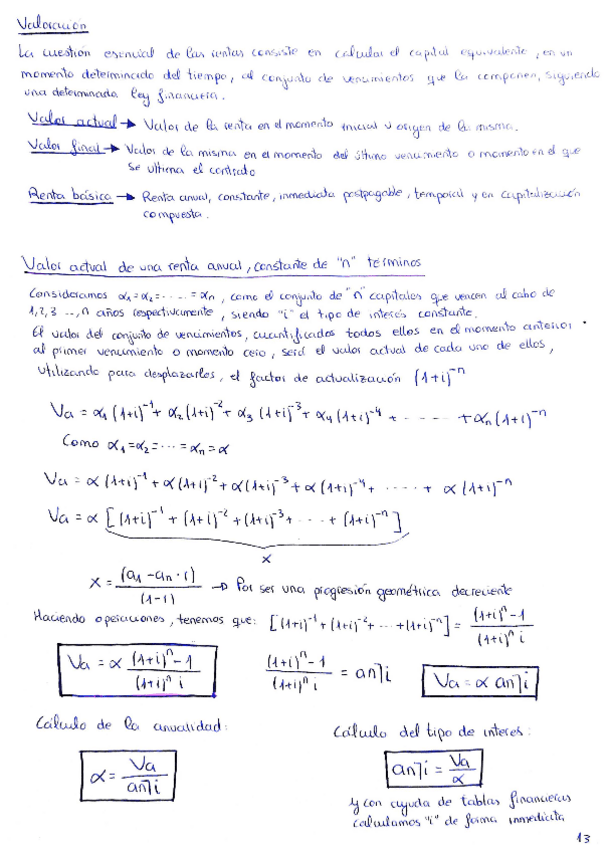 Valoración
La cuestión esencial de las rentas consiste en calcular el capital equivalente, en un
momento determinado del tiempo, al conjunto de vencimientos que la componen, siguiendo
una determinada ley financiera.
Valor actual → Valor de la renta en el momento inicial u origen de la misma.
Valor final → Valor de la misma en el momento del último vencimiento o momento en el que
se ultima el contrato
Renta básica → Renta anual, constante, inmediata postpagable, temporal y en capitalización
compuesta.
Valor actual de una renta anual, constante de "n" términos
Consideramos α₁=α₂=·····=αn, como el conjunto de "n" capitales que vencen al cabo de
1,2,3 ...,n años respectivamente, siendo "i" el tipo de interés constante.
El valor del conjunto de vencimientos, cuantificados todos ellos en el momento anterior
al primer vencimiento o momento cero, será el valor actual de cada uno de ellos,
utilizando para desplazarlos, el factor de actualización (1+i)⁻ⁿ
Va = α₁(1+i)⁻¹ + α₂(1+i)⁻² + α₃(1+i)⁻³ + α₄(1+i)⁻⁴ + ····· + αn(1+i)⁻ⁿ
Como α₁=α₂=···=αn=α
Va = α(1+i)⁻¹ + α(1+i)⁻² + α(1+i)⁻³ + α(1+i)⁻⁴ + ····· + α(1+i)⁻ⁿ
Va = α [(1+i)⁻¹ + (1+i)⁻² + (1+i)⁻³ + ··· + (1+i)⁻ⁿ]
x
x = (a₁ - an · r) / (1-r) → Por ser una progresión geométrica decreciente
Haciendo operaciones, tenemos que: [(1+i)⁻¹ + (1+i)⁻² + ··· + (1+i)⁻ⁿ] = (1+i)ⁿ-1 / (1+i)ⁿ i
Va = α (1+i)ⁿ-1 / (1+i)ⁿ i    (1+i)ⁿ-1 / (1+i)ⁿ i = an⌉i    Va = α an⌉i
Cálculo de la anualidad:    Cálculo del tipo de interes:
α = Va / an⌉i    an⌉i = Va / α
y con ayuda de tablas financieras
calculamos "i" de forma inmediata
13